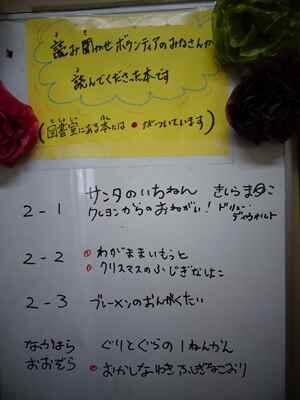 読み聞かせボランティアのみなさんが
読んでくださった本です
(図書室にある本には ● がついています)
2-1 サンタのいちねん きしらまゆこ
クレヨンからのおねがい! ドリュー・デイウォルト
2-2 ● わがままいもうと
● クリスマスのふしぎなはこ
2-3 ブレーメンのおんがくたい
なかはら ぐりとぐらの1ねんかん
おおぞら ● おかしなゆき ふしぎなこおり